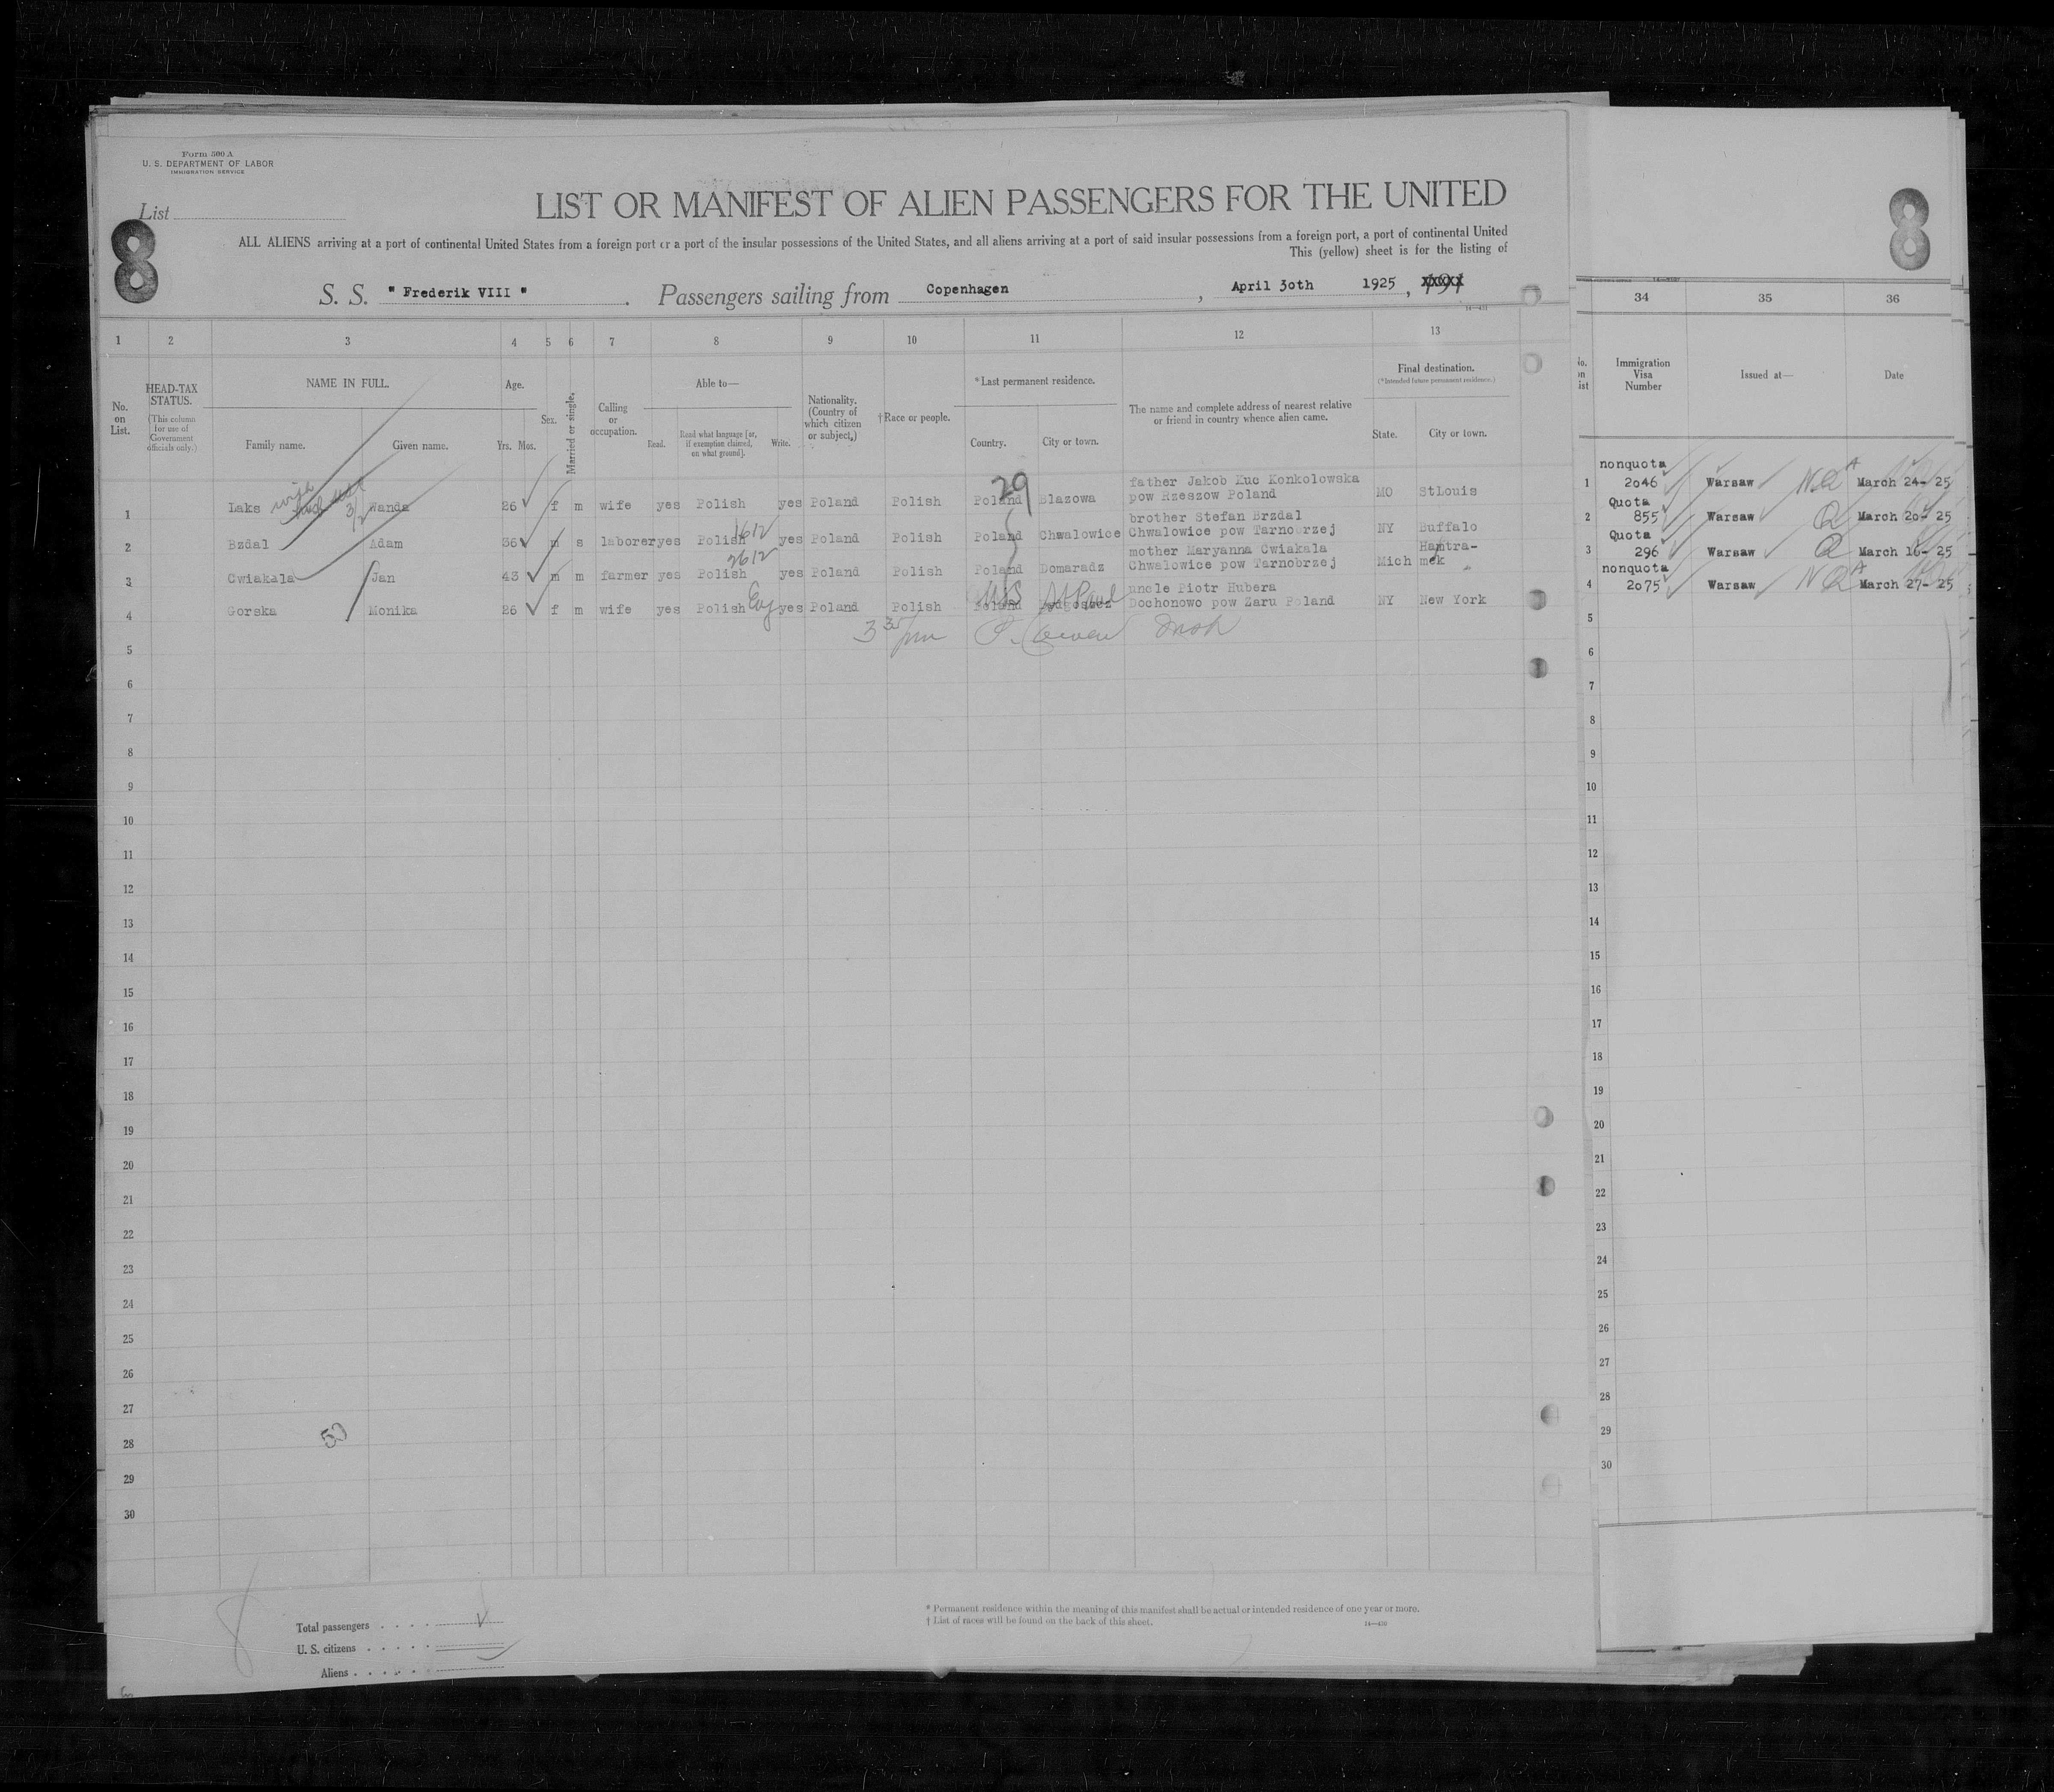 Form 500 A
U. S. DEPARTMENT OF LABOR
IMMIGRATION SERVICE
List
8
8
LIST OR MANIFEST OF ALIEN PASSENGERS FOR THE UNITED
ALL ALIENS arriving at a port of continental United States from a foreign port or a port of the insular possessions of the United States, and all aliens arriving at a port of said insular possessions from a foreign port, a port of continental United
This (yellow) sheet is for the listing of
S. S. " Frederik VIII " Passengers sailing from Copenhagen , April 3oth 1925 ,
1 2 3 4 5 6 7 8 9 10 11 12 13 34 35 36
HEAD-TAX STATUS. (This column for use of Government officials only.)
No. on List.
NAME IN FULL.
Family name. Given name.
Age.
Yrs. Mos.
Sex.
Married or single.
Calling or occupation.
Able to—
Read. Read what language [or, if exemption claimed, on what ground]. Write.
Nationality. (Country of which citizen or subject.)
†Race or people.
*Last permanent residence.
Country. City or town.
The name and complete address of nearest relative or friend in country whence alien came.
Final destination.
(*Intended future permanent residence.)
State. City or town.
No. on list Immigration Visa Number Issued at— Date
29
father Jakob Kuc Konkolowska
1 Laks wife Wanda 26 f m wife yes Polish yes Poland Polish Poland Blazowa pow Rzeszow Poland MO StLouis
nonquota
1 2o46 Warsaw March 24- 25
1612
brother Stefan Brzdal
2 Bzdal Adam 36 m s laborer yes Polish yes Poland Polish Poland Chwalowice Chwalowice pow Tarnobrzej NY Buffalo
Quota
2 855 Warsaw Q March 2o- 25
2612
mother Maryanna Cwiakala
3 Cwiakala Jan 43 m m farmer yes Polish yes Poland Polish Poland Domaradz Chwalowice pow Tarnobrzej Mich Hamtra-
mek
Quota
3 296 Warsaw Q March 16- 25
uncle Piotr Hubera
4 Gorska Monika 26 f m wife yes Polish yes Poland Polish Poland Dochonowo pow Zaru Poland NY New York
St Paul
nonquota
4 2o75 Warsaw March 27- 25
5
6
7
8
9
10
11
12
13
14
15
16
17
18
19
20
21
22
23
24
25
26
27
28
29
30
5
6
7
8
9
10
11
12
13
14
15
16
17
18
19
20
21
22
23
24
25
26
27
28
29
30
50
8
Total passengers
U. S. citizens
Aliens
* Permanent residence within the meaning of this manifest shall be actual or intended residence of one year or more.
† List of races will be found on the back of this sheet.